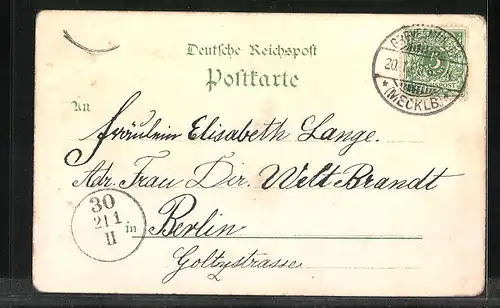 Deutsche Reichspost
Postkarte
An
Fräulein Elisabeth Lange.
Adr. Frau Dir. Welt Brandt
in Berlin
Goltzstrasse
GREVESMÜHLEN
20.
* (MECKLB.) *
5
30
21 1
II